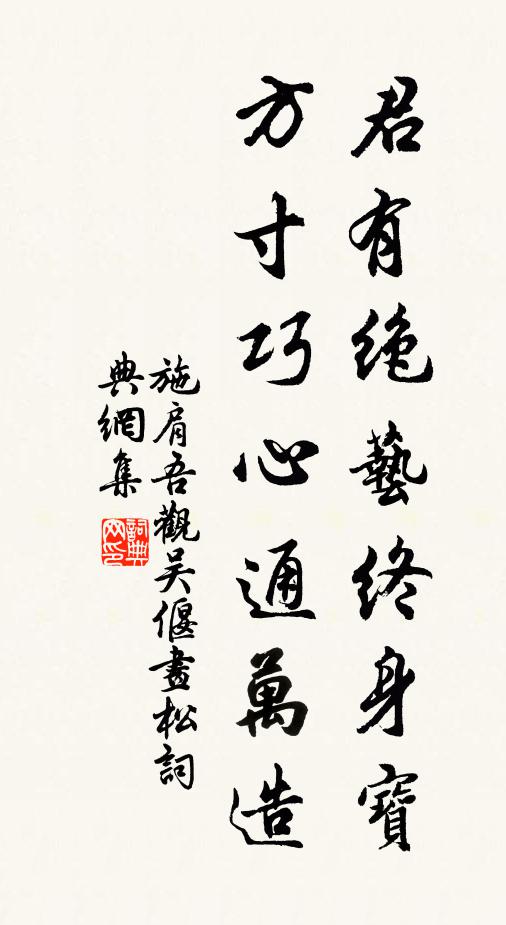 君有絶藝終身寶
方寸巧心通萬造
施肩吾觀吴偃畫松詞
典網集
詞典網印